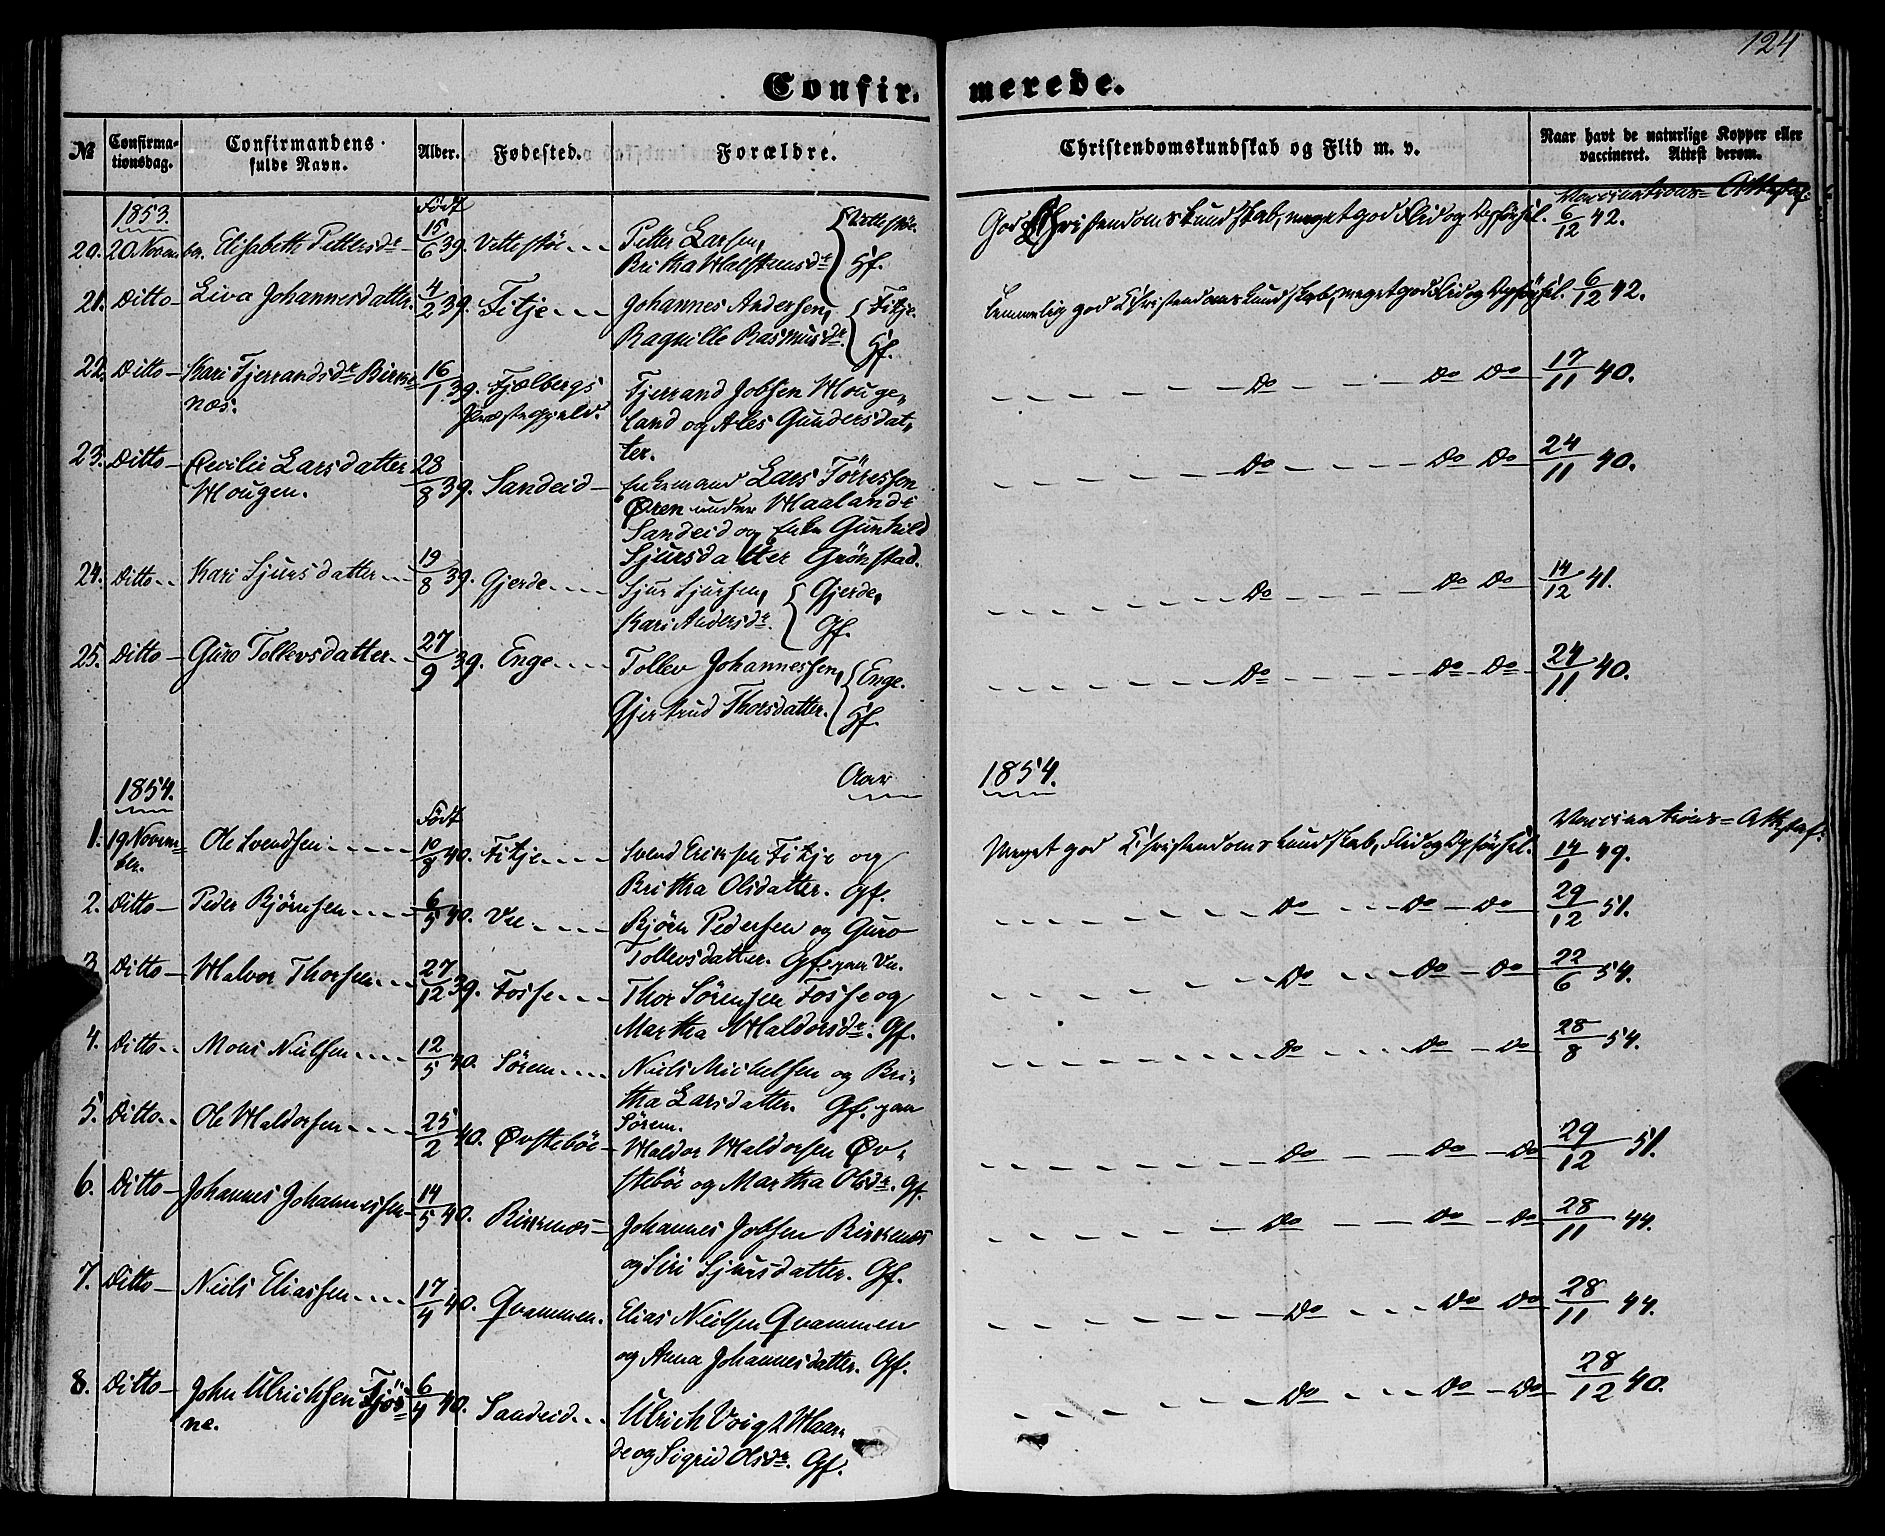 124
Confir- merede.
№ Confirma- Confirmandens Alder. Fødested. Forældre. Christendomskundskab og Flid m. v. Naar havt de naturlige Kopper eller
tionsdag. fulde Navn. vaccineret. Attest derom.
1853. Født Vaccinations-Attest af:
20. 20 Novem- Elisabeth Pettersdr 15/6 39. Vettestöe Petter Larsen, Vettestöe. God Christendomskundskab, meget god Flid og Opförsel. 6/12 42.
ber. Britha Halstensdr Gf.
21. Ditto Liva Johannesdatter. 4/2 39. Fitje Johannes Andersen, Fitje. Temmelig god Christendomskundskab, meget god Flid og Opförsel. 6/12 42.
Ragnille Rasmusdr. Gf.
22. Ditto Kari Fjerrandsdr Birke- 16/1 39. Fjælbergs Fjerrand Jobsen Houge- Do Do Do 17/11 40.
næs. Præstegjeld. land og Ales Gundersdat-
ter.
23. Ditto Cecilie Larsdatter 28/8 39. Sandeid Enkemand Lars Törressen Do Do Do 24/11 40.
Hougen. Øren under Haaland i
Sandeid og Enke Gunhild
Sjursdatter Grönstad.
24. Ditto Kari Sjursdatter 19/8 39. Gjerde Sjur Sjursen, Gjerde, Do Do Do 14/12 41.
Kari Andersdr. Gf.
25. Ditto Guro Tollevsdatter 27/9 39. Enge Tollev Johannessen, Enge. Do Do Do 24/11 40.
Gjertrud Thorsdatter. Gf.
1854. Aar 1854.
Født Vaccinations-Attest af:
1. 19 Novem- Ole Svendsen 10/8 40. Fitje Svend Eriksen Fitje og Meget god Christendomskundskab, Flid og Opförsel. 49.
ber. Britha Olsdatter. Gf.
2. Ditto Peder Björnsen 6/5 40. Vee Björn Pedersen og Guro Do Do Do 29/12 51.
Tollevsdatter. Gf. paa Ve.
3. Ditto Halvor Thorsen 27/12 39. Fosse Thor Sörensen Fosse og Do Do Do 22/6 54.
Martha Haldorsdr. Gf.
4. Ditto Mons Nielsen 12/5 40. Sörem Niels Michelsen og Bri- Do Do Do 28/8 54.
tha Larsdatter. Gf. paa
Sörem.
5. Ditto Ole Haldorsen 25/2 40. Øvsteböe Haldor Haldorsen Øv- Do Do Do 29/12 51.
steböe og Martha Olsdr. Gf.
6. Ditto Johannes Johannessen 14/5 40. Birkenæs Johannes Jobsen Birkenæs Do Do Do 28/11 44.
og Siri Sjursdatter. Gf.
7. Ditto Niels Eliassen 17/4 40. Qvammen. Elias Nielsen Qvammen Do Do Do 28/11 44.
og Anna Johannesdatter. Gf.
8. Ditto John Ulrichsen Fjös- 6/4 40. Sandeid Ulrich Voigt Haan- Do Do Do 28/12 40.
ne. de og Sigrid Olsdr. Gf.